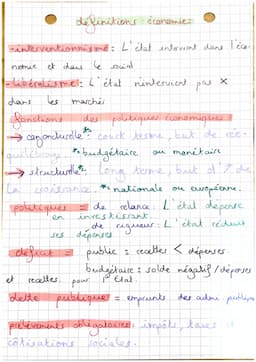 définitions économie:
- interventionnisme: L'état intervient dans l'éco-
nomie et dans le social
- libéralisme: L'état n'intervient pas ×
dans les marchés
fonctions des politiques économiques:
→ conjoncturelle*: court terme, but de réé-
quilibrage. *: budgétaire ou monétaire
→ structurelle*: long terme, but d'↗ de
la croissance. *: nationale ou européenne.
politiques = de relance: L'état dépense
en investissant.
de rigueur: L'état réduit
ses dépenses
déficit = public: recettes < dépenses
budgétaire: solde négatif / dépenses
et recettes pour l'état.
dette publique = emprunts des admi. publiques
prélèvements obligatoires: impôts, taxes
cotisations sociales.